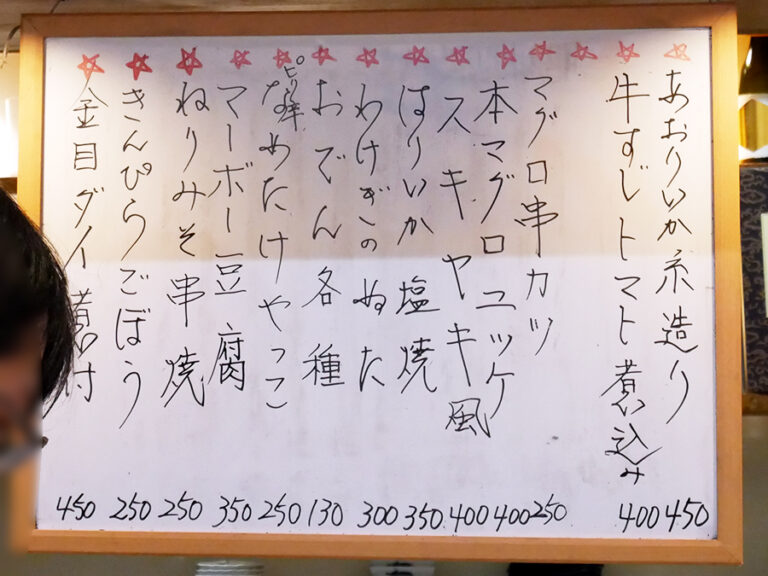 あおりいか糸造り 450
牛すじトマト煮い込み 400
マグロ串カツ 250
本マグロユッケ 400
スキヤキ風 400
はりいか塩焼 350
わけぎのぬた 300
おでん各種 130
ピリ辛なめたけやっこ 250
マーボー豆腐 350
ねりみそ串焼 250
きんぴらごぼう 250
金目ダイ煮い付 450